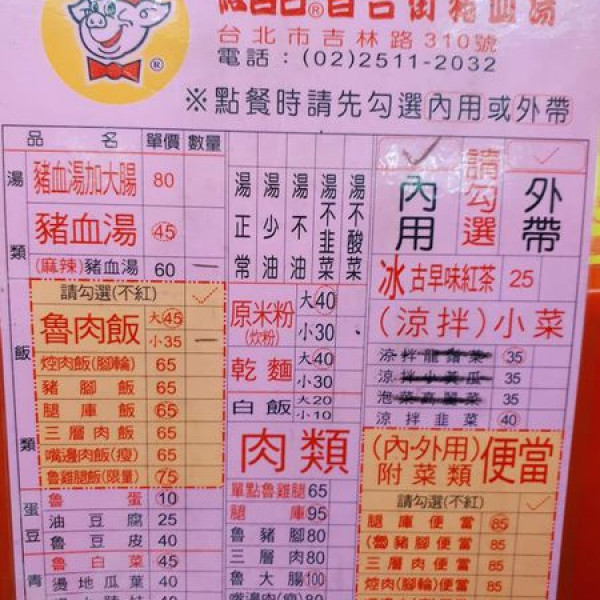 昌吉街豬血湯
台北市吉林路310號
電話：(02)2511-2032
※點餐時請先勾選內用或外帶
品名 單價 數量
湯類
豬血湯加大腸 80
豬血湯 45
(麻辣)豬血湯 60
飯類
請勾選(不紅)
魯肉飯 大45 小35
焢肉飯(腳輪) 65
豬腳飯 65
腿庫飯 65
三層肉飯 65
嘴邊肉飯(瘦) 65
魯雞腿飯(限量) 75
蛋豆
魯蛋 10
油豆腐 25
魯豆皮 40
青
魯白菜 45
燙地瓜葉 40
湯正常
湯少油
湯不油
湯不韭菜
湯不酸菜
原米粉(炊粉) 大40 小30
乾麵 大40 小30
白飯 大20 小10
肉類
單點魯雞腿 65
腿庫 95
魯豬腳 80
三層肉 80
魯大腸 100
嘴邊肉(瘦) 80
內用
請勾選
外帶
冰古早味紅茶 25
(涼拌)小菜
涼拌龍鬚菜 35
涼拌小黃瓜 35
泡菜高麗菜 35
涼拌韭菜 40
(內-外用)附菜類便當
請勾選(不紅)
腿庫便當 85
(魯)豬腳便當 85
三層肉便當 85
焢肉(腳輪)便當 85